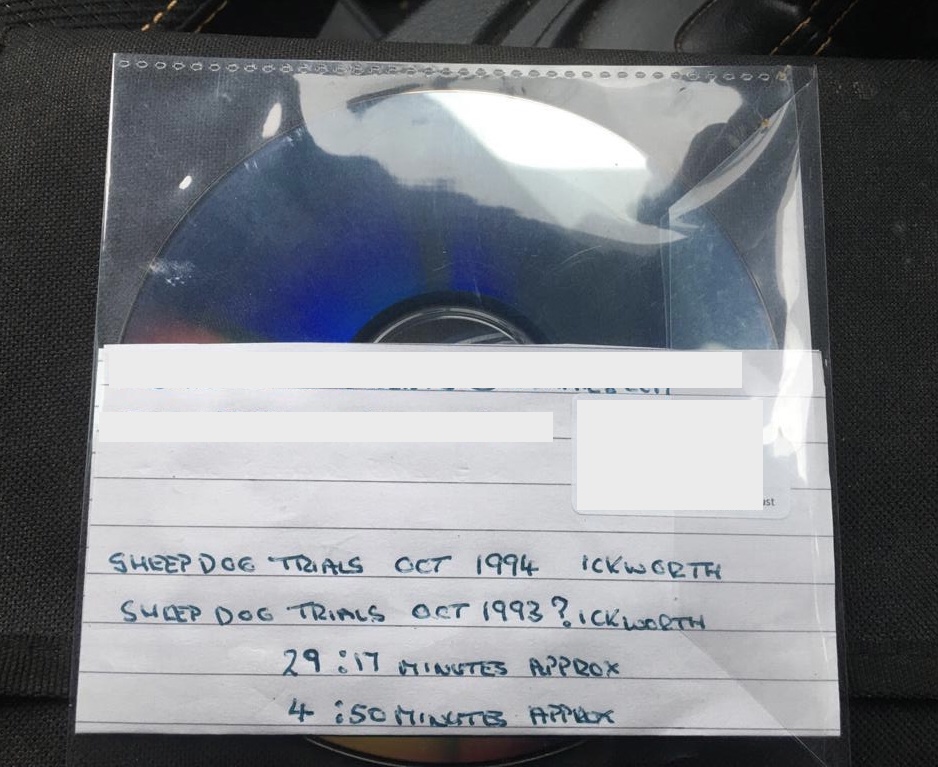 SHEEP DOG TRIALS OCT 1994 ICKWORTH
SHEEP DOG TRIALS OCT 1993? ICKWORTH
29:17 MINUTES APPROX
4:50 MINUTES APPROX